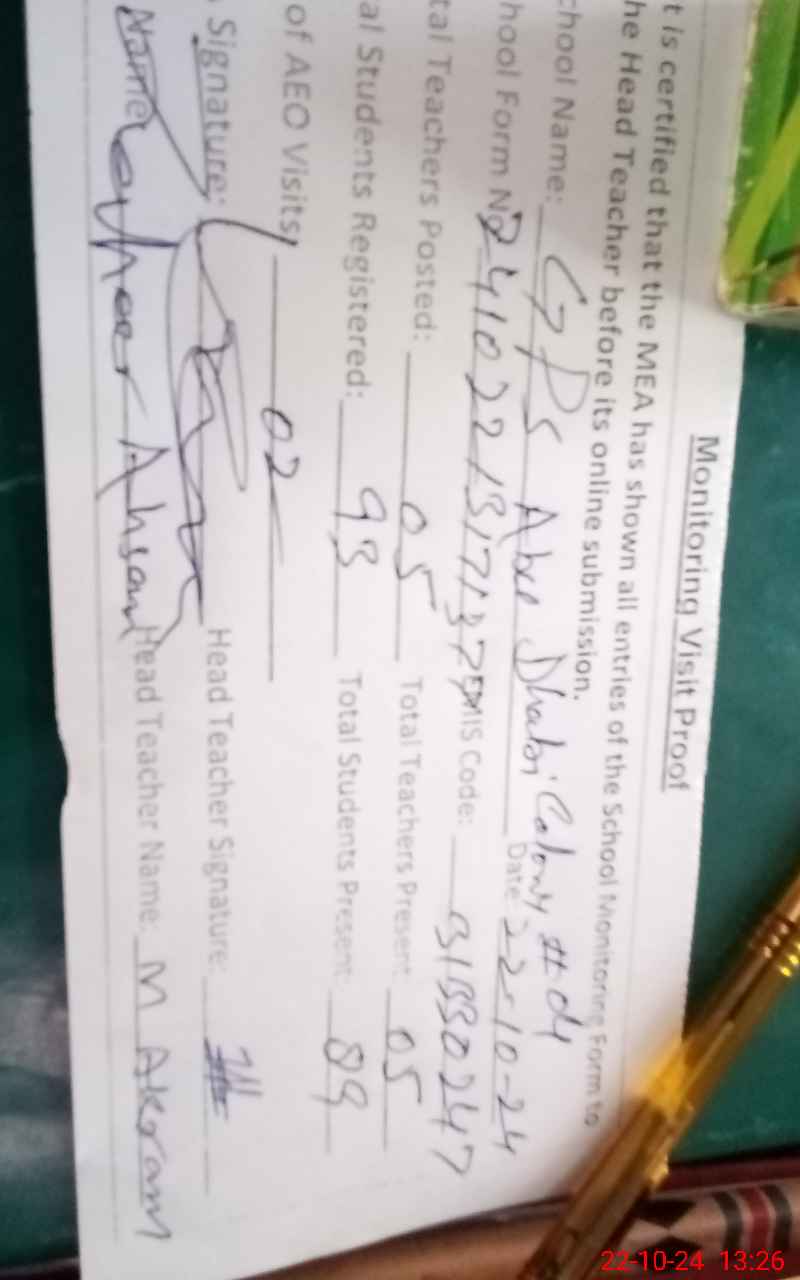 Monitoring Visit Proof
t is certified that the MEA has shown all entries of the School Monitoring Form to
he Head Teacher before its online submission.
chool Name: GPS Abu Dhabi Colony # 04 Date: 22-10-24
hool Form No MIS Code: 31330247
tal Teachers Posted: 05 Total Teachers Present: 05
al Students Registered: 93 Total Students Present: 89
of AEO Visits 02
Signature: Head Teacher Signature:
Name Ahsan Head Teacher Name: M Akram
22-10-24 13:26